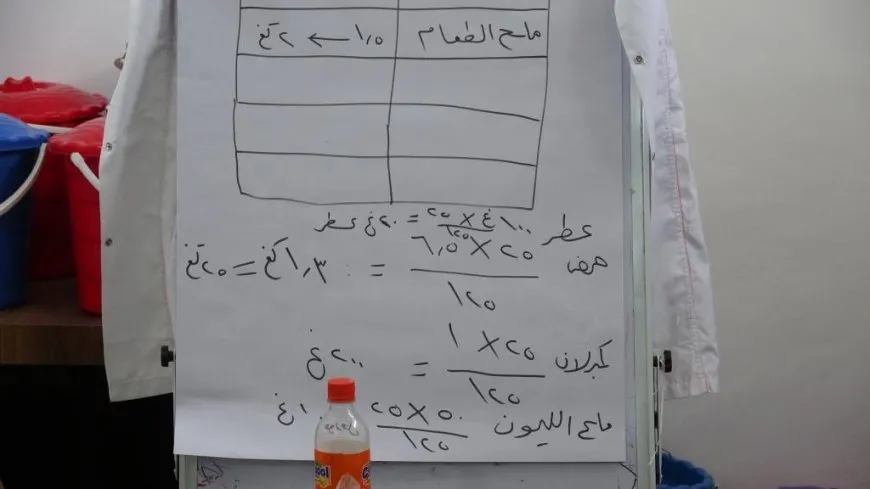 ملح الطعام ١٫٥ ← ٢ كغ
عطر ١٠٠غ × ٢٥ / ١٢٥ = ٢٠غ عطر
حمض ٦٫٥ × ٢٥ / ١٢٥ = ١٫٣ كغ = ٢٥ كغ
كبرلان ١ × ٢٥ / ١٢٥ = ٢٠٠ غ
ملح الليمون ٥٠ × ٢٥ / ١٢٥ ١٠غ